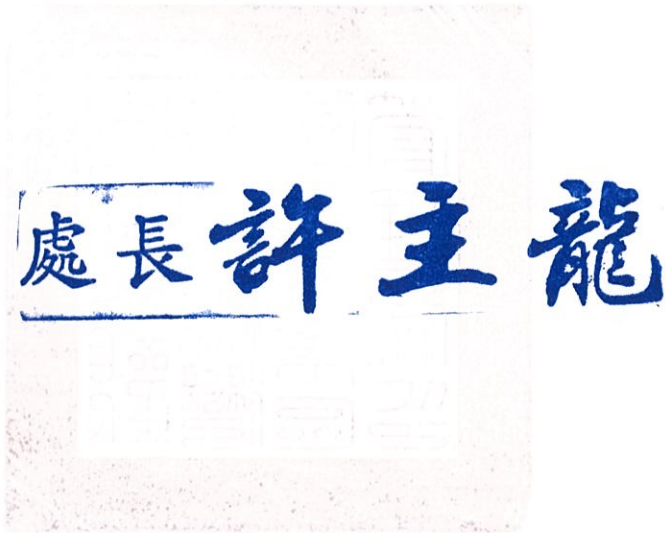 處長許主龍